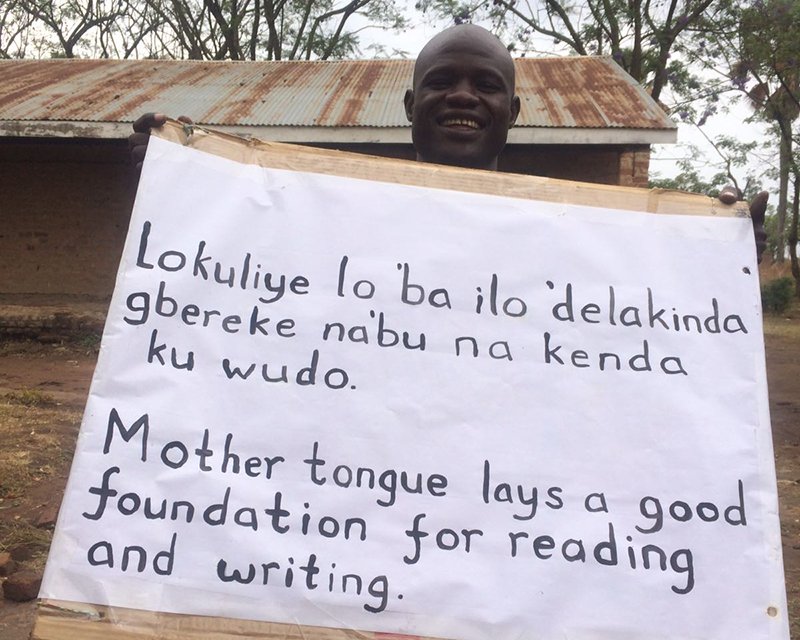 Lokuliye lo 'ba ilo 'delakinda
gbereke na'bu na kenda
ku wudo.
Mother tongue lays a good
foundation for reading
and writing.